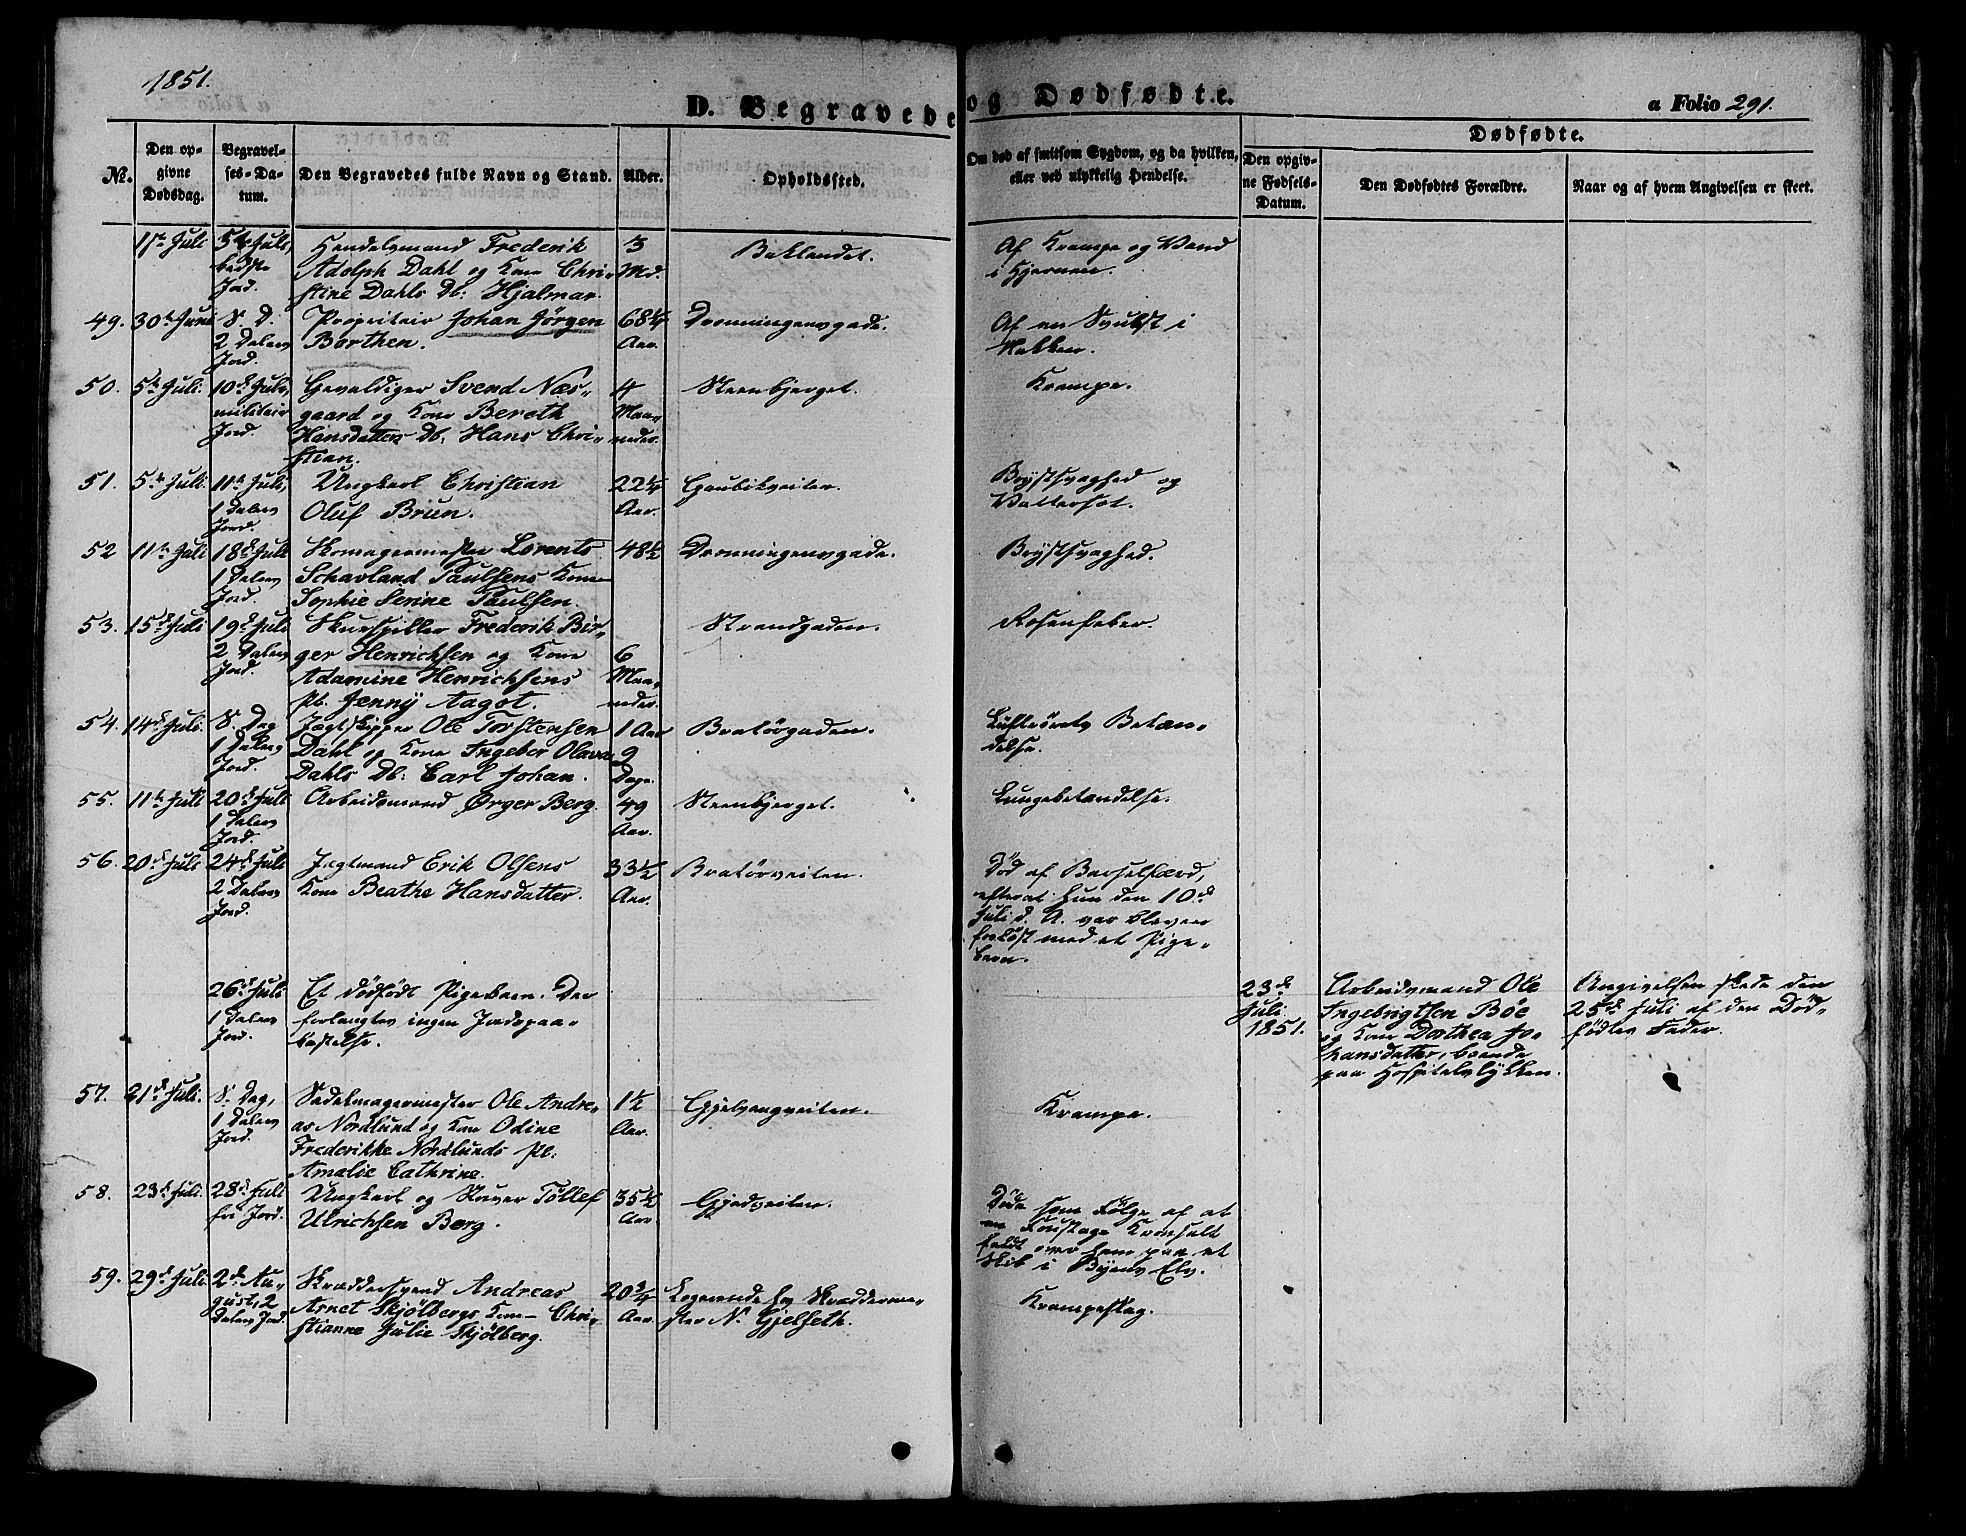 1851.
D. Begravede og Dødfødte.
a Folio 291.
№.
Den op-
givne
Dødsdag.
Begravel-
ses-Da-
tum.
Den Begravedes fulde Navn og Stand.
Alder.
Opholdssted.
Om død af smitsom Sygdom, og da hvilken,
eller ved ulykkelig Hendelse.
Dødfødte.
Den opgiv-
ne Fødsels-
Datum.
Den Dødfødtes Forældre.
Naar og af hvem Angivelsen er skeet.
1ste Juli
5te Juli,
Jord.
Handelsmand Frederik
Adolph Dahl og Kone Chri-
stine Dahls Db: Hjalmar.
3
Md.
Baklandet.
Af Krampe og Vand
i Hjernen.
49.
30te Juni
S. D.
2 Dalers
Jord.
Propritair Johan Jørgen
Borthen.
68 1/4
Aar.
Dronningensgade.
Af en Svulst i
Nakken.
50.
5te Juli.
10de Juli,
militair
Jord.
Gevaldiger Svend Næs-
gaard og Kone Bereth
Hansdatters Db: Hans Chri-
stian.
4
Maa-
neder.
Steenbjerget.
Krampe.
51.
5te Juli.
11te Juli,
1 Dalers
Jord.
Ungkarl Christian
Oluf Brun.
22 1/4
Aar.
Gaubækveiten.
Brystsvaghed og
Vattersot.
52
11te Juli
18de Juli
1 Dalers
Jord.
Skomagermester Lorents
Schavland Paulsens Kone
Sophie Serine Paulsen.
48 1/2
Dronningensgade.
Brystsvaghed.
53.
15de Juli
19de Juli
2 Dalers
Jord.
Skuespiller Frederik Bir-
ger Henrichsen og Kone
Adamine Henrichsens
Pb. Jenny Aagot.
6
Maa-
neder.
Strandgaden.
Rosenfeber.
54.
14de Juli.
S. Dag
1 Dalers
Jord.
Jagtskipper Ole Torstensen
Dahl og Kone Ingebor Olava
Dahls Db: Carl Johan.
1 Aar
9
Dage.
Bratørgaden.
Luftrørets Betæn-
delse.
55.
11te Juli
20de Juli
1 Dalers
Jord.
Arbeidsmand Ørger Berg.
49
Aar.
Steenbjerget.
Lungebetændelse.
56.
20de Juli
24de Juli
2 Dalers
Jord.
Jagtmand Erik Olsens
Kone Beathe Hansdatter.
33 1/2
Aar.
Bratørveiten.
Død af Barselfærd,
efterat hun den 10de
Juli d. A. var bleven
forløst med et Pige-
barn.
26de Juli
1 Dalers
Jord.
Et dødfødt Pigebarn. Der
forlangtes ingen Jordspaa-
kastelse.
23de
Juli
1851.
Arbeidsmand Ole
Ingebrigtsen Bøe
og Kone Dorthea Jo-
hansdatter, boende
paa Hospitalsløkken.
Angivelsen skede den
25de Juli af den Død-
fødtes Fader.
57.
21de Juli.
S. Dag,
1 Dalers
Jord.
Sadelmagermester Ole Andre-
as Nordlund og Kone Odine
Frederikke Nordlunds Pb:
Amalie Cathrine.
1 1/2
Aar.
Gjelvangveiten.
Krampe.
58.
23de Juli.
28de Juli
fri Jord.
Ungkarl og Stuver Tøllef
Ulrichsen Berg.
35 1/2
Aar.
Gjedveiten.
Døde som Følge af at
en Foustage Kornsalt
faldt over ham paa et
Skib i Byens Elv.
59.
29de Juli
2de Au-
gust, 2
Dalers Jord.
Skræddersvend Andreas
Arnet Skjølbergs Kone Chri-
stianne Julie Skjølberg.
20 3/4
Aar.
Logerende hos Skrædderme-
ster N. Gjelseth.
Krampeslag.